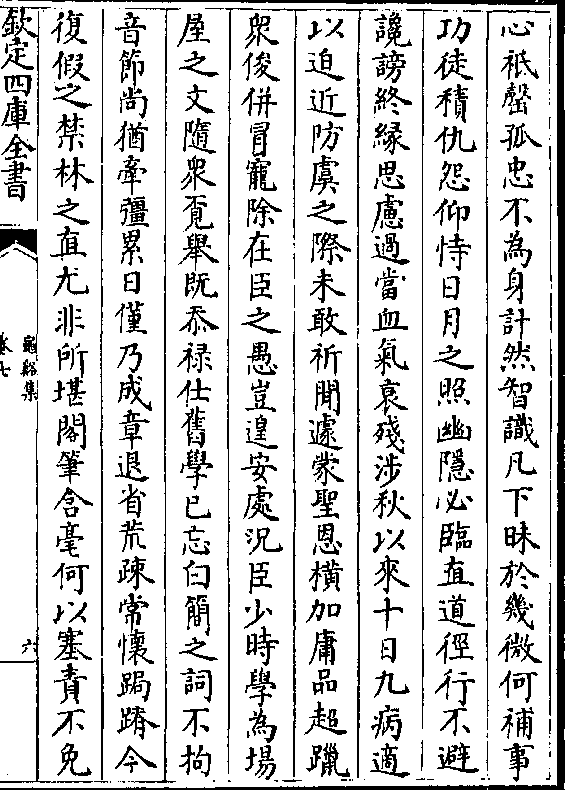 心祇罄孤忠不為身計然智識凡下昧於幾微何補事
功徒積仇怨仰恃日月之照幽隱必臨直道徑行不避
讒謗終緣思慮過當血氣衰殘涉秋以來十日九病適
以迫近防虞之際未敢祈閒遽蒙聖恩橫加庸品超躐
衆俊併冒寵除在臣之愚豈遑安處況臣少時學為場
屋之文隨衆覔舉既忝禄仕舊學已忘白簡之詞不拘
音節尚猶牽彊累日僅乃成章退省荒疎常懷跼蹐今
復假之禁林之直尤非所堪閣筆含毫何以塞責不免
欽定四庫全書
龜谿集
卷七
六